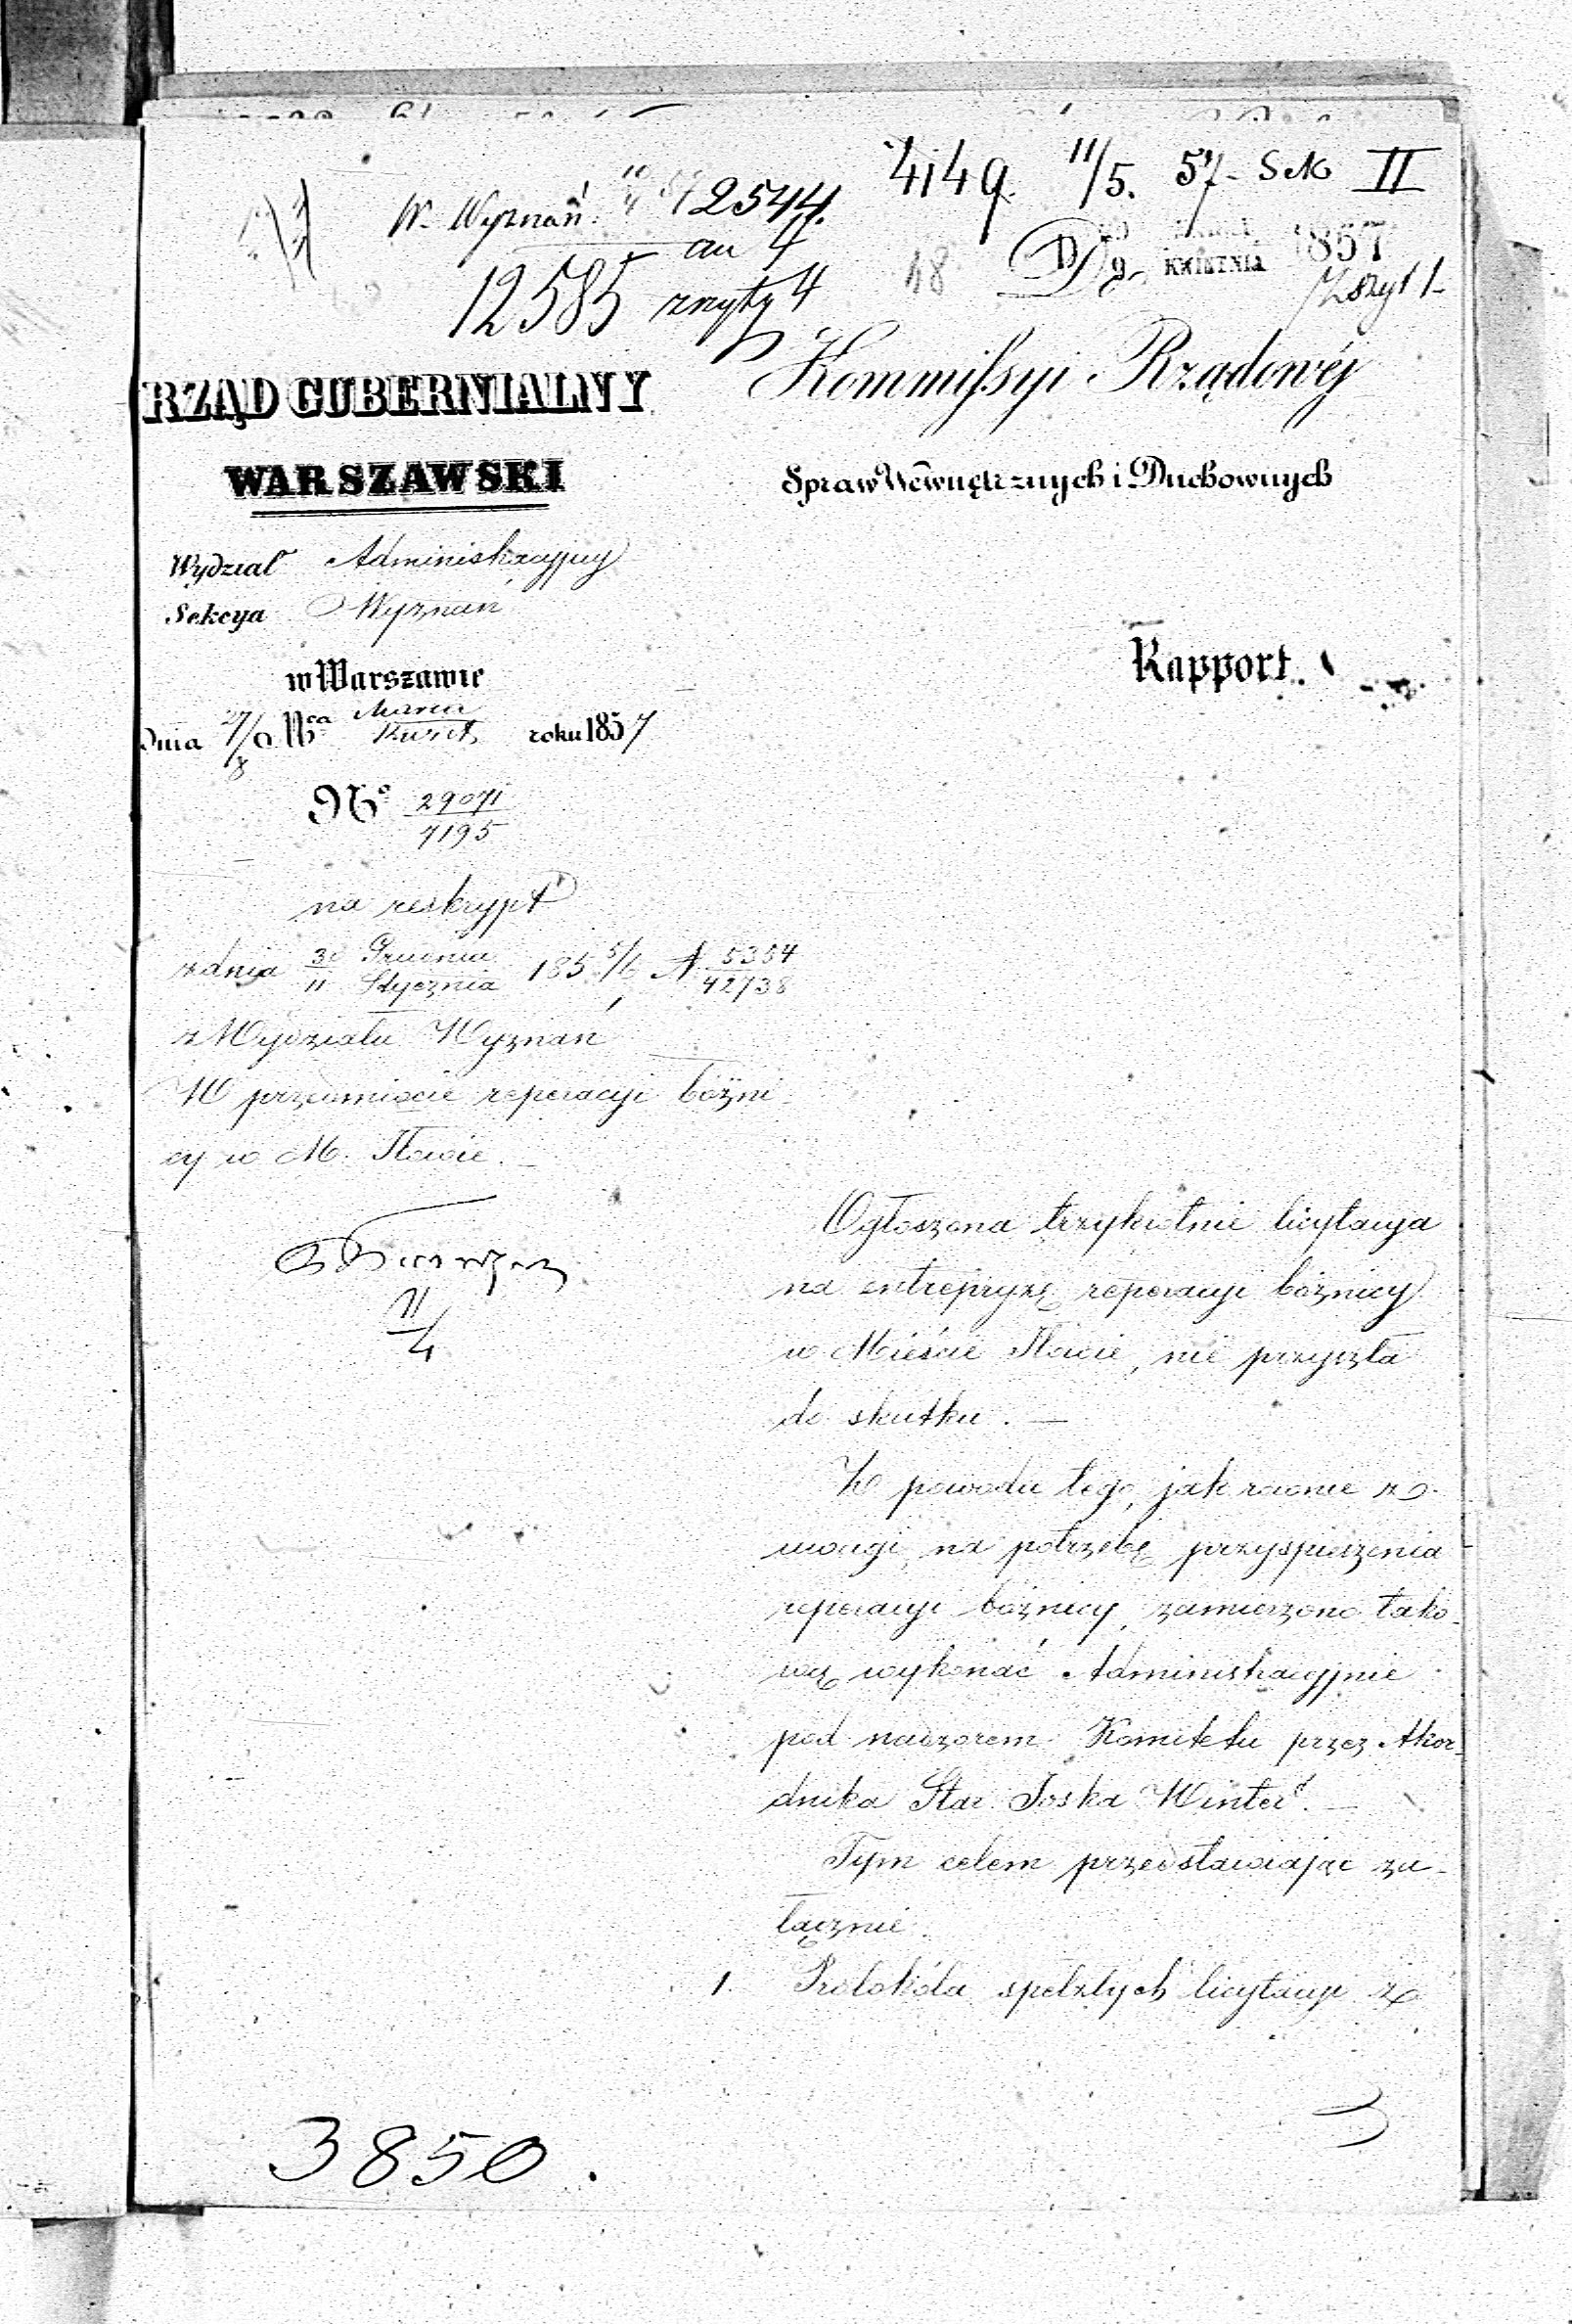 4149. 11/5. 57 - Sek II
W. Wyznań 2544.
an 4
12585 zszyty 4
48 D 9 KWIETNIA 1857
Zszyt 1
RZĄD GUBERNIALNY
WARSZAWSKI
Wydział Administracyjny
Sekcya Wyznań
w Warszawie
Dnia 27/8 Marca/Kwiet. roku 1857
No 29071/7195
na reskrypt
z dnia 30 Grudnia/11 Stycznia 185 5/6 N 5354/42738
z Wydziału Wyznań
W przedmiocie reperacyi bóżni-
cy w M. Iłowie.
11/4
Kommissyi Rządowéj
Spraw Wewnętrznych i Duchownych
Rapport.
Ogłoszona trzykrotnie licytacya
na entrepryzę reperacyi bóżnicy
w Mieście Iłowie, nie przyszła
do skutku. —
Z powodu tego, jak równie z
uwagi, na potrzebę przyspieszenia
reperacyi bóżnicy, zamierzono tako-
wą wykonać Administracyjnie
pod nadzorem Komitetu przez Akor-
dnika Star. Joska Winter. —
Tym celem przedstawiając za-
łącznie.
1. Protokóła spełzłych licytacyi z
3850.